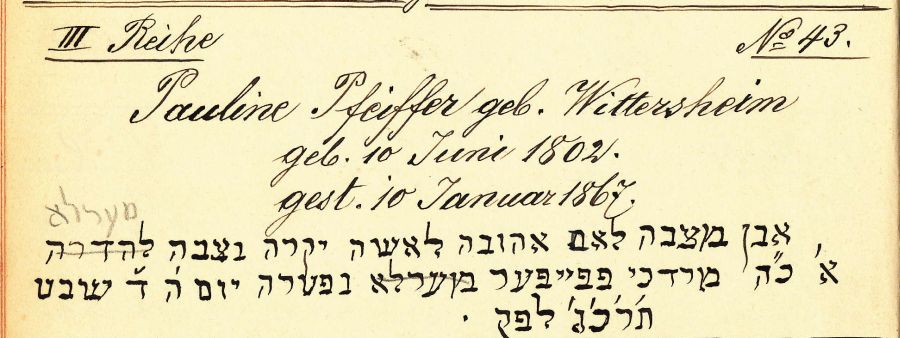 III Reihe
No 43.
Pauline Pfeiffer geb. Wittersheim
geb. 10 Juni 1802.
gest. 10 Januar 1867.
מערלא
אבן מצבה לאם אהובה לאשה יקרה נצבה להדרה
א' כ"ה מרדכי פפייפער מערלא נפטרה יום ה' ד' שובט
ת'ר'כ'ג' לפק .